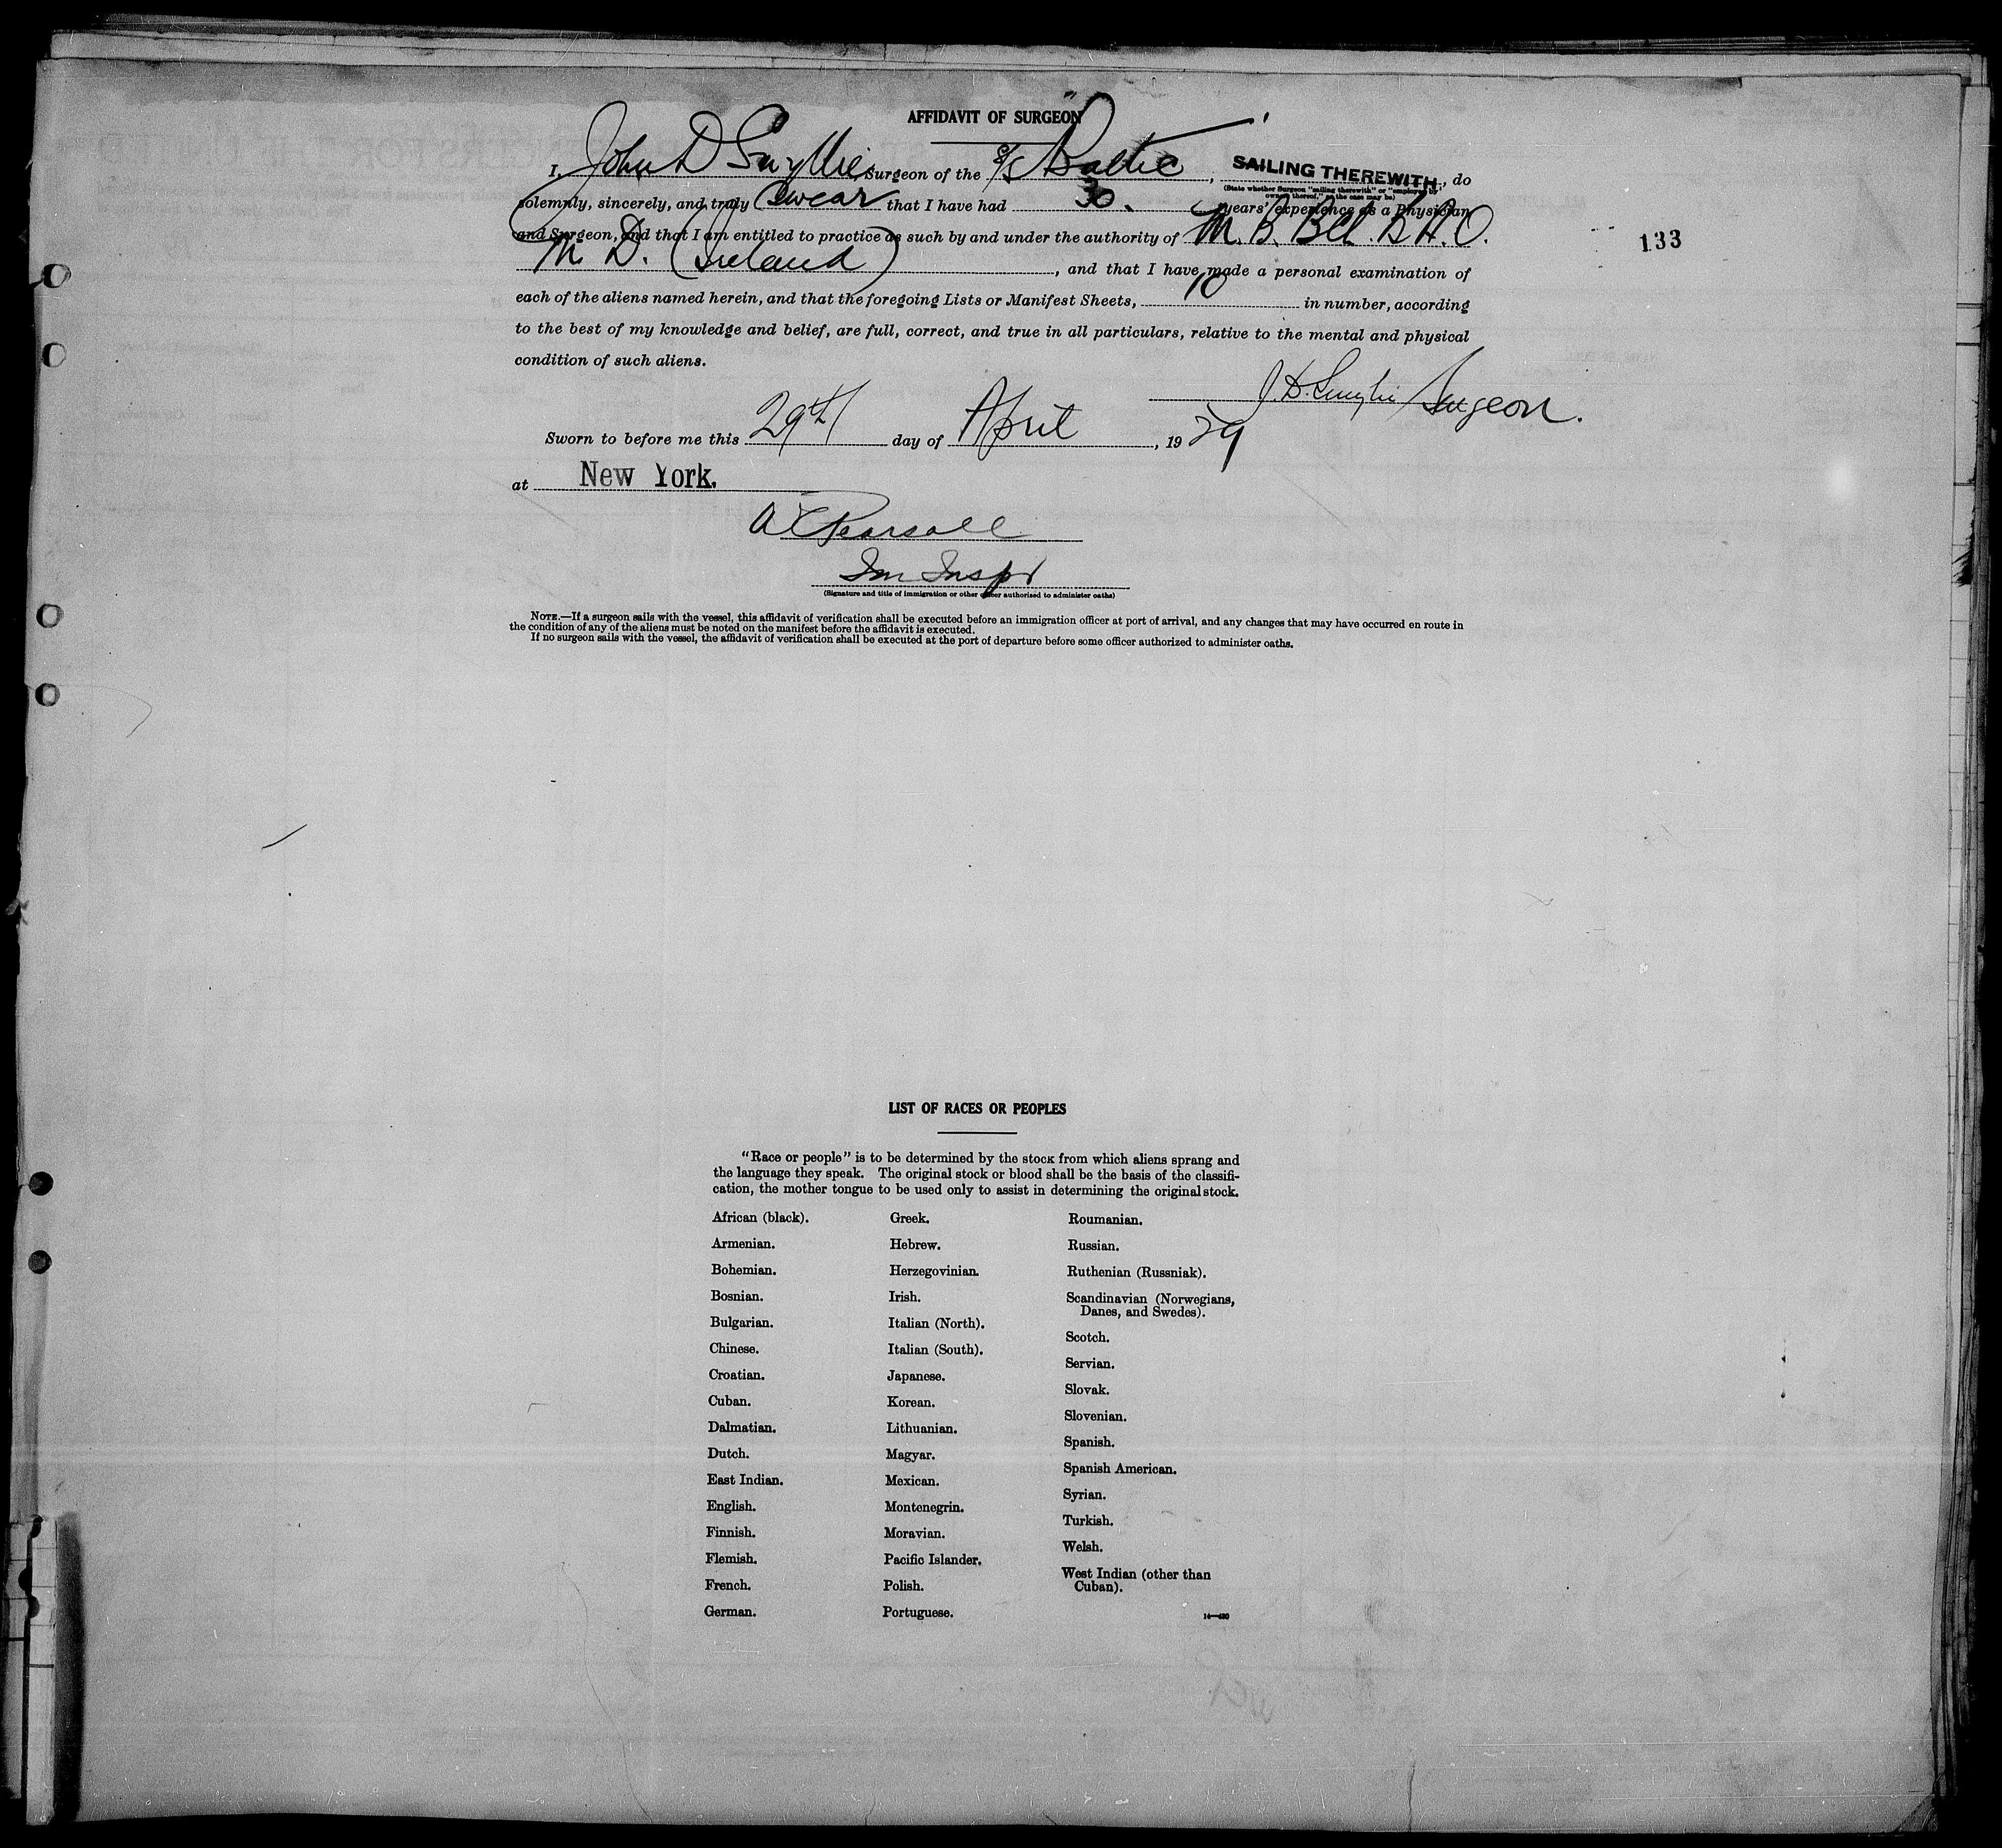 AFFIDAVIT OF SURGEON
I, John D Smyllie, Surgeon of the S/S "Baltic", SAILING THEREWITH, do
(State whether Surgeon "sailing therewith" or "employed by owners thereof," as the case may be)
solemnly, sincerely, and truly swear that I have had 30. years' experience as a Physician
and Surgeon, and that I am entitled to practice as such by and under the authority of M. B. BCh. B.A.O.
M. D. (Ireland), and that I have made a personal examination of
each of the aliens named herein, and that the foregoing Lists or Manifest Sheets, 10 in number, according
to the best of my knowledge and belief, are full, correct, and true in all particulars, relative to the mental and physical
condition of such aliens.
133
J. D. Smyllie Surgeon.
Sworn to before me this 29th day of April, 1929
at New York.
Pearsall
Im Inspr
(Signature and title of immigration or other officer authorised to administer oaths)
NOTE.—If a surgeon sails with the vessel, this affidavit of verification shall be executed before an immigration officer at port of arrival, and any changes that may have occurred en route in
the condition of any of the aliens must be noted on the manifest before the affidavit is executed.
If no surgeon sails with the vessel, the affidavit of verification shall be executed at the port of departure before some officer authorized to administer oaths.
LIST OF RACES OR PEOPLES
"Race or people" is to be determined by the stock from which aliens sprang and
the language they speak. The original stock or blood shall be the basis of the classifi-
cation, the mother tongue to be used only to assist in determining the original stock.
African (black).
Armenian.
Bohemian.
Bosnian.
Bulgarian.
Chinese.
Croatian.
Cuban.
Dalmatian.
Dutch.
East Indian.
English.
Finnish.
Flemish.
French.
German.
Greek.
Hebrew.
Herzegovinian.
Irish.
Italian (North).
Italian (South).
Japanese.
Korean.
Lithuanian.
Magyar.
Mexican.
Montenegrin.
Moravian.
Pacific Islander.
Polish.
Portuguese.
Roumanian.
Russian.
Ruthenian (Russniak).
Scandinavian (Norwegians,
Danes, and Swedes).
Scotch.
Servian.
Slovak.
Slovenian.
Spanish.
Spanish American.
Syrian.
Turkish.
Welsh.
West Indian (other than
Cuban).